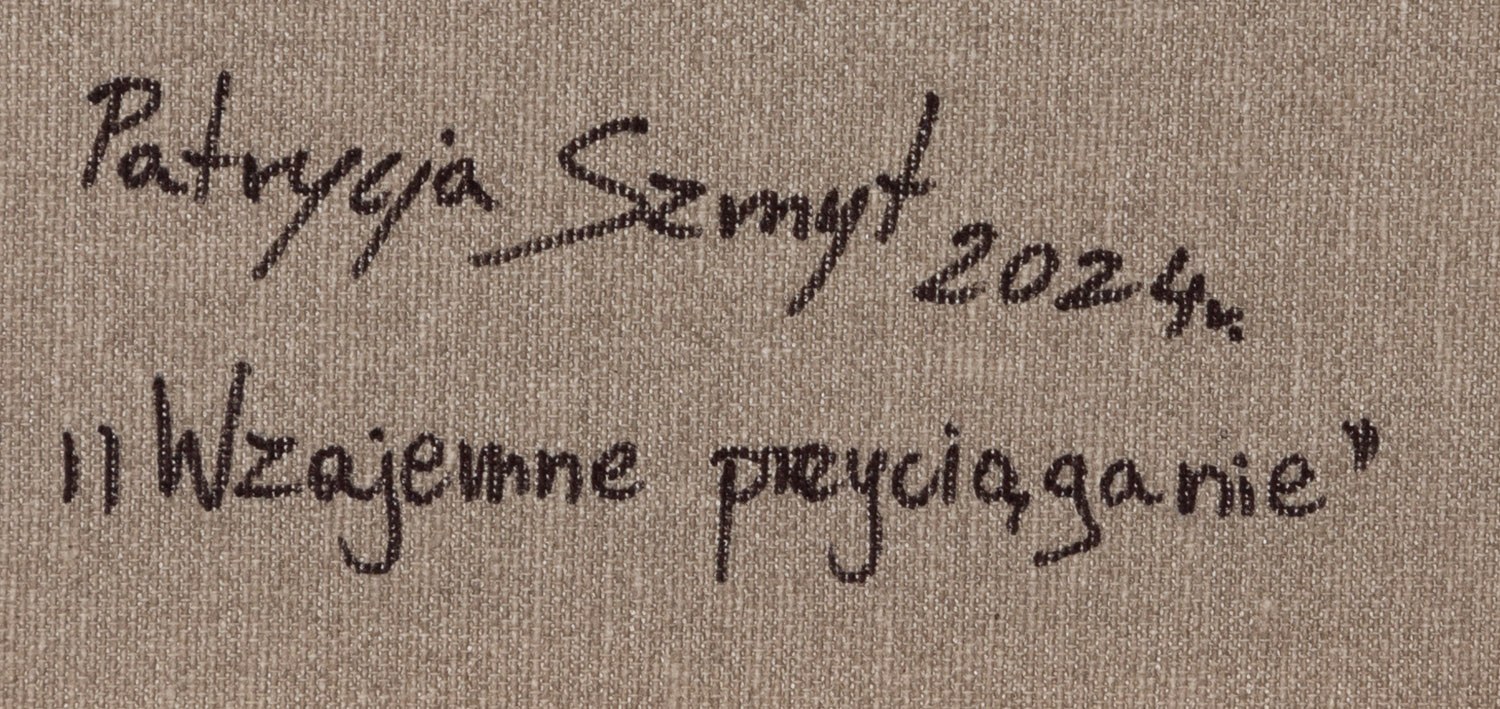 Patrycja Szmyt 2024r.
"Wzajemne przyciąganie"